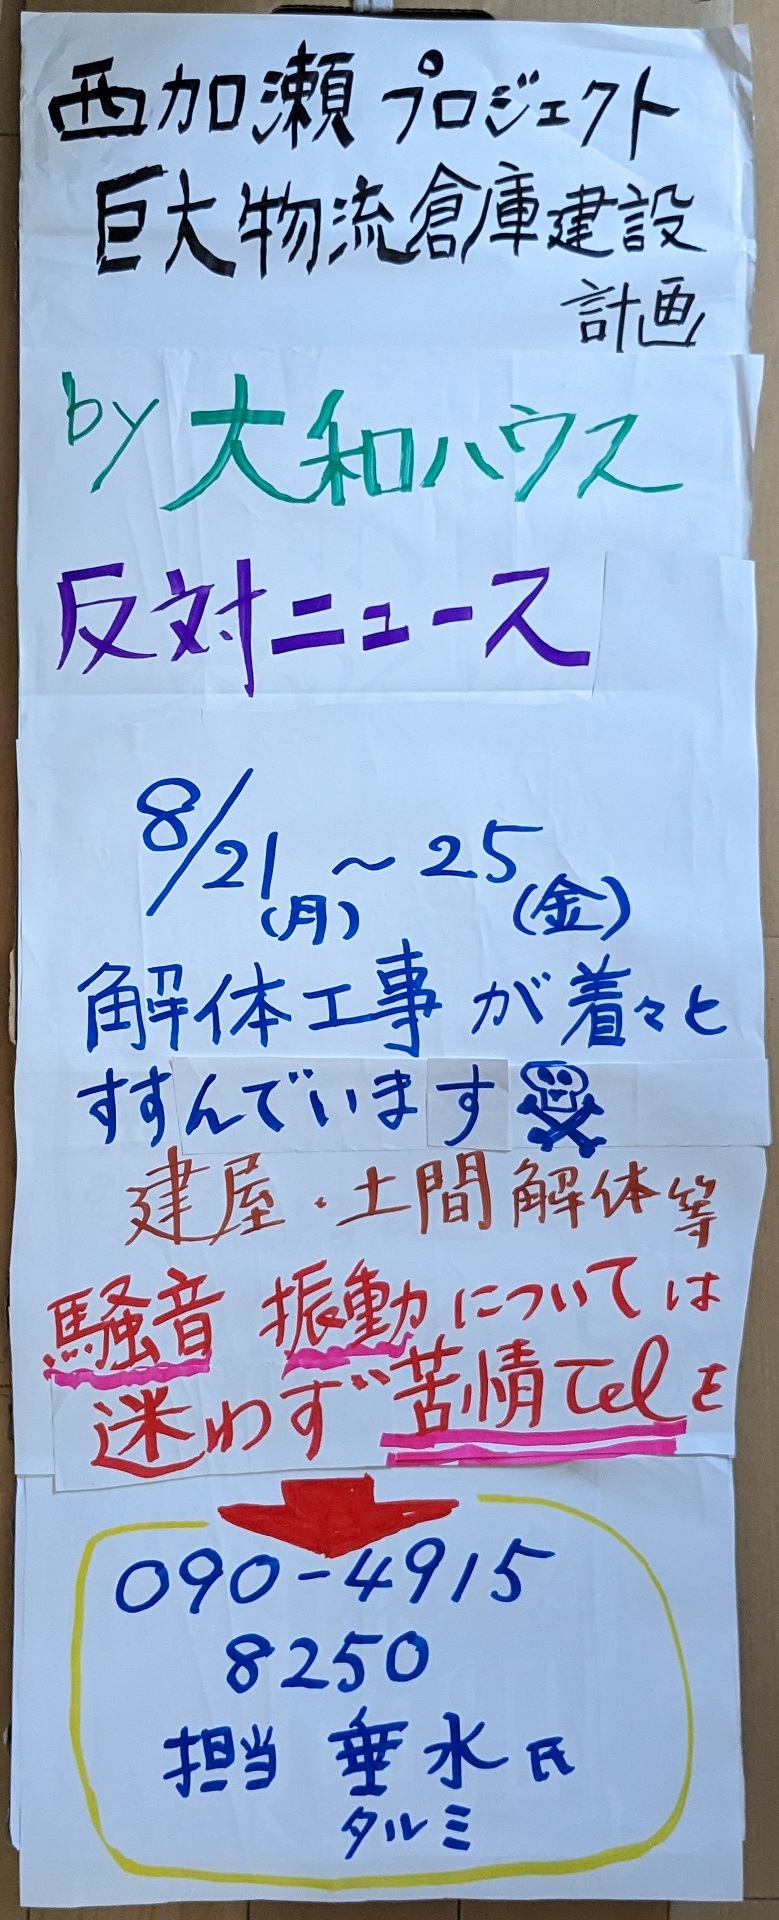 西加瀬プロジェクト
巨大物流倉庫建設
計画
by 大和ハウス
反対ニュース
8/21(月)～25(金)
解体工事が着々と
すすんでいます
建屋・土間解体等
騒音 振動については
迷わず苦情Telを
090-4915
8250
担当 垂水氏
タルミ